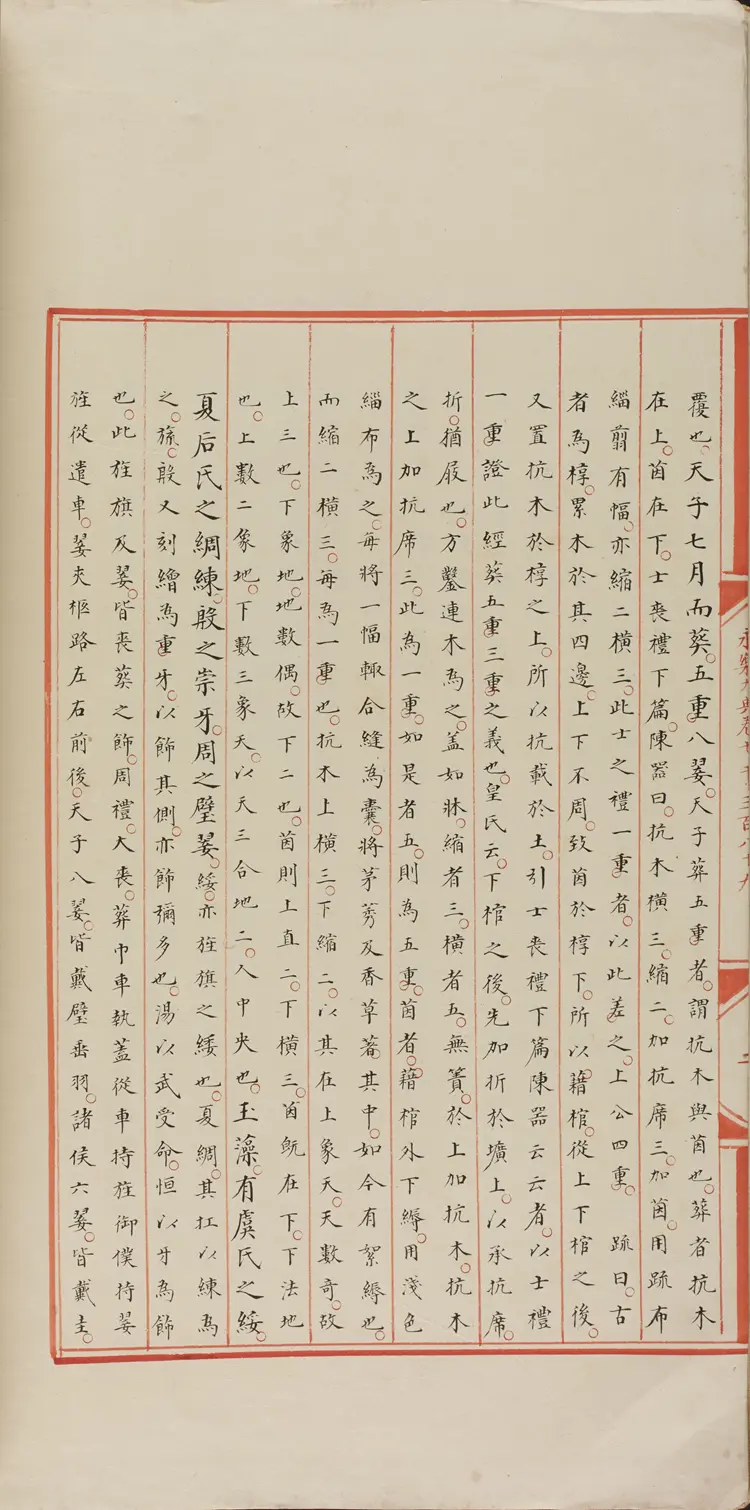 永樂大典卷
覆也。天子七月而葬。五重八翣。天子葬五重者。謂抗木與茵也。葬者抗木
在上。茵在下。士喪禮下篇。陳器曰。抗木橫三。縮二。加抗席三。加茵。用疏布
緇翦有幅。亦縮二橫三。此士之禮一重者。以此差之。上公四重。 疏曰。古
者為椁。累木於其四邊。上下不周。致茵於椁下。所以藉棺。從上下棺之後。
又置抗木於椁之上。所以抗載於土。引士喪禮下篇陳器云云者。以士禮
一重證此經葬五重三重之義也。皇氏云。下棺之後。先加折於壙上。以承抗席。
折。猶庪也。方鑿連木為之。蓋如牀。縮者三。橫者五。無簀。於上加抗木。抗木
之上加抗席三。此為一重。如是者五。則為五重。茵者。藉棺外下縟。用淺色
緇布為之。每將一幅輒合縫為囊。將茅莠及香草著其中。如今有絮縟也。
而縮二橫三。每為一重也。抗木上橫三。下縮二。以其在上象天。天數奇。故
上三也。下象地。地數偶。故下二也。茵則上直二。下橫三。茵旣在下。下法地
也。上數二象地。下數三象天。以天三合地二。人中央也。玉藻。有虞氏之綏。
夏后氏之綢練。殷之崇牙。周之璧翣。綏。亦旌旗之緌也。夏綢。其杠以練為
之。旒。殷又刻繒為重牙。以飾其側。亦飾彌多也。湯以武受命。恒以牙為飾
也。此旌旗及翣。皆喪葬之飾。周禮。大喪。葬巾車執蓋從車持旌御僕持翣
旌從遣車。翣夾柩路左右前後。天子八翣。皆戴璧垂羽。諸侯六翣。皆戴圭。